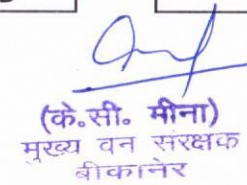 (के.सी. मीना)
मुख्य वन संरक्षक
बीकानेर